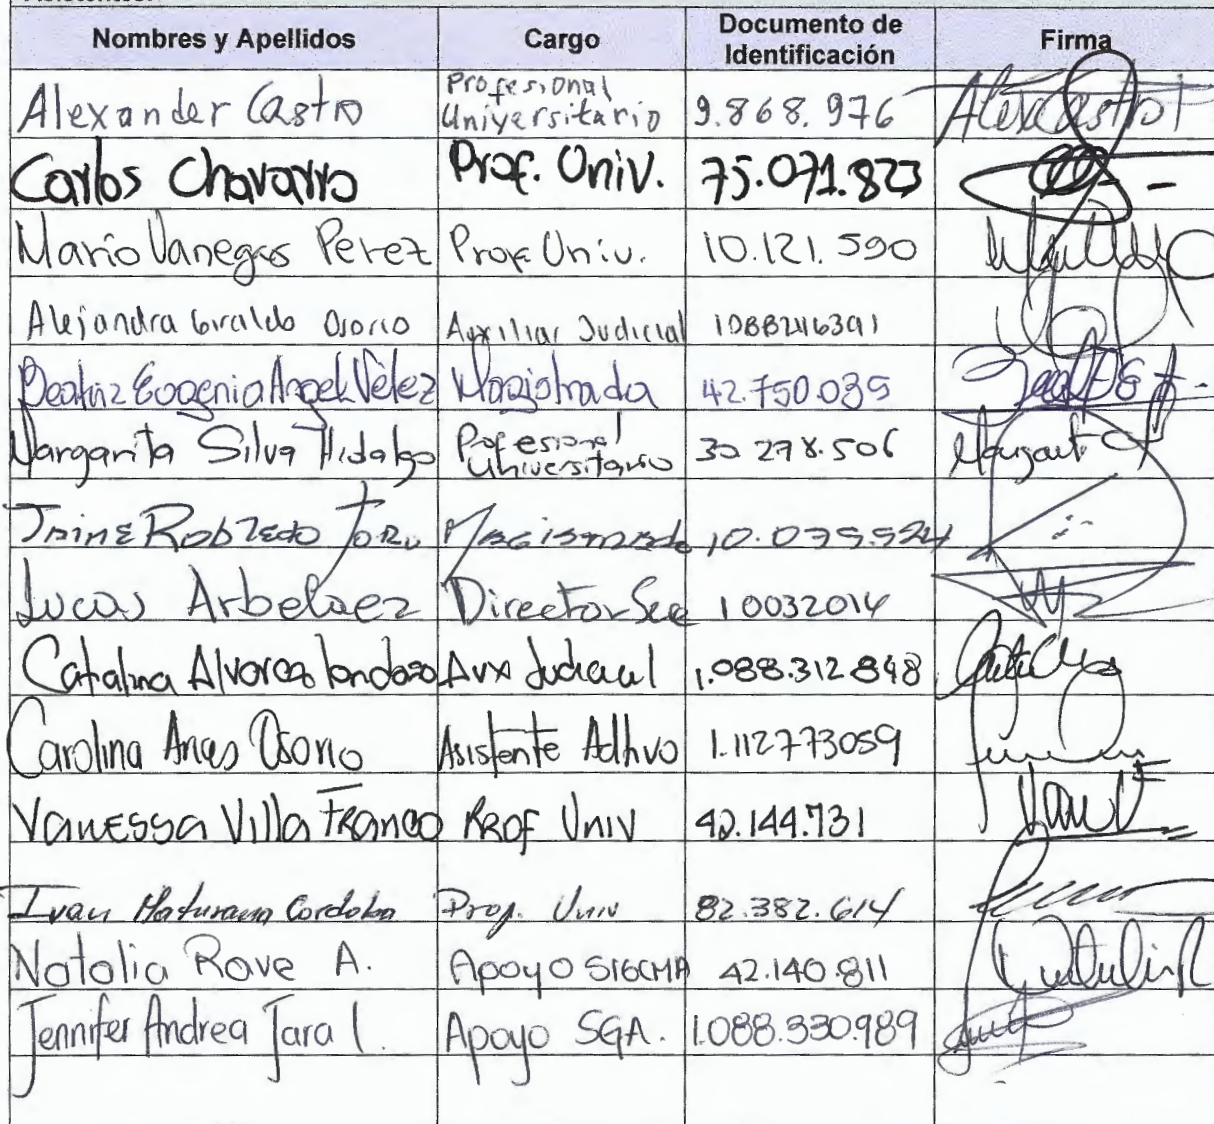 Nombres y Apellidos Cargo Documento de Identificación Firma
Alexander Castro Profesional Universitario 9.868.976 Alex Castro T
Carlos Chavarro Prof. Univ. 75.071.823
Mario Vanegas Perez Prof Univ. 10.121.590
Alejandra Giraldo Osorio Auxiliar Judicial 1088246391
Beatriz Eugenia Angel Vélez Magistrada 42.750.035
Margarita Silva Hidalgo Profesional Universitario 30.278.506 Margarit
Jaime Robledo Toro Magistrado 10.075.524
Lucas Arbelaez Director Sec 10032014
Catalina Alvarez Londoso Aux Judicial 1.088.312.848
Carolina Arias Osorio Asistente Adtivo 1.112773059
Vanessa Villa Franco Prof Univ 42.144.731
Ivan Maturana Cordoba Prof. Univ 82.382.614
Natalia Rave A. Apoyo SIGCMA 42.140.811
Jennifer Andrea Jara l. Apoyo SGA. 1.088.330.989